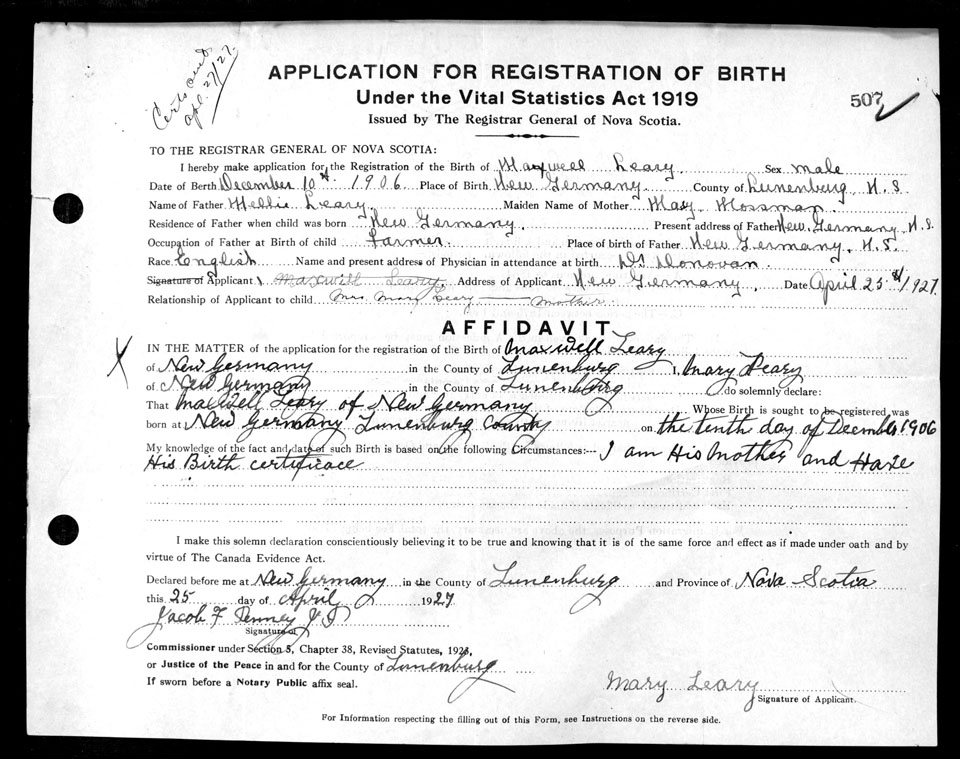 Certs and
apl. 27/27.
APPLICATION FOR REGISTRATION OF BIRTH
Under the Vital Statistics Act 1919
507
Issued by The Registrar General of Nova Scotia.
TO THE REGISTRAR GENERAL OF NOVA SCOTIA:
I hereby make application for the Registration of the Birth of Maxwell Leary Sex male
Date of Birth December 10th 1906 Place of Birth New Germany County of Lunenburg N.S
Name of Father Leary Maiden Name of Mother Mary Mossman
Residence of Father when child was born New Germany. Present address of Father New Germany N.S.
Occupation of Father at Birth of child farmer. Place of birth of Father New Germany. N.S.
Race English Name and present address of Physician in attendance at birth Dr Donovan.
Signature of Applicant Maxwell Leary Address of Applicant New Germany Date April 25th 1927.
Relationship of Applicant to child Mrs Mary Leary — mother
AFFIDAVIT
IN THE MATTER of the application for the registration of the Birth of Maxwell Leary
of New Germany in the County of Lunenburg I, Mary Leary
of New Germany in the County of Lunenburg do solemnly declare:
That Maxwell Leary of New Germany Whose Birth is sought to be registered was
born at New Germany Lunenburg County on the tenth day of December 1906
My knowledge of the fact and date of such Birth is based on the following Circumstances:— I am His Mother and Have
His Birth certificace
I make this solemn declaration conscientiously believing it to be true and knowing that it is of the same force and effect as if made under oath and by
virtue of The Canada Evidence Act.
Declared before me at New Germany in the County of Lunenburg and Province of Nova Scotia
this 25 day of April 1927
Jacob F Penney J P
Signature of
Commissioner under Section 5, Chapter 38, Revised Statutes, 1923,
or Justice of the Peace in and for the County of Lunenburg
If sworn before a Notary Public affix seal.
Mary Leary
Signature of Applicant.
For Information respecting the filling out of this Form, see Instructions on the reverse side.